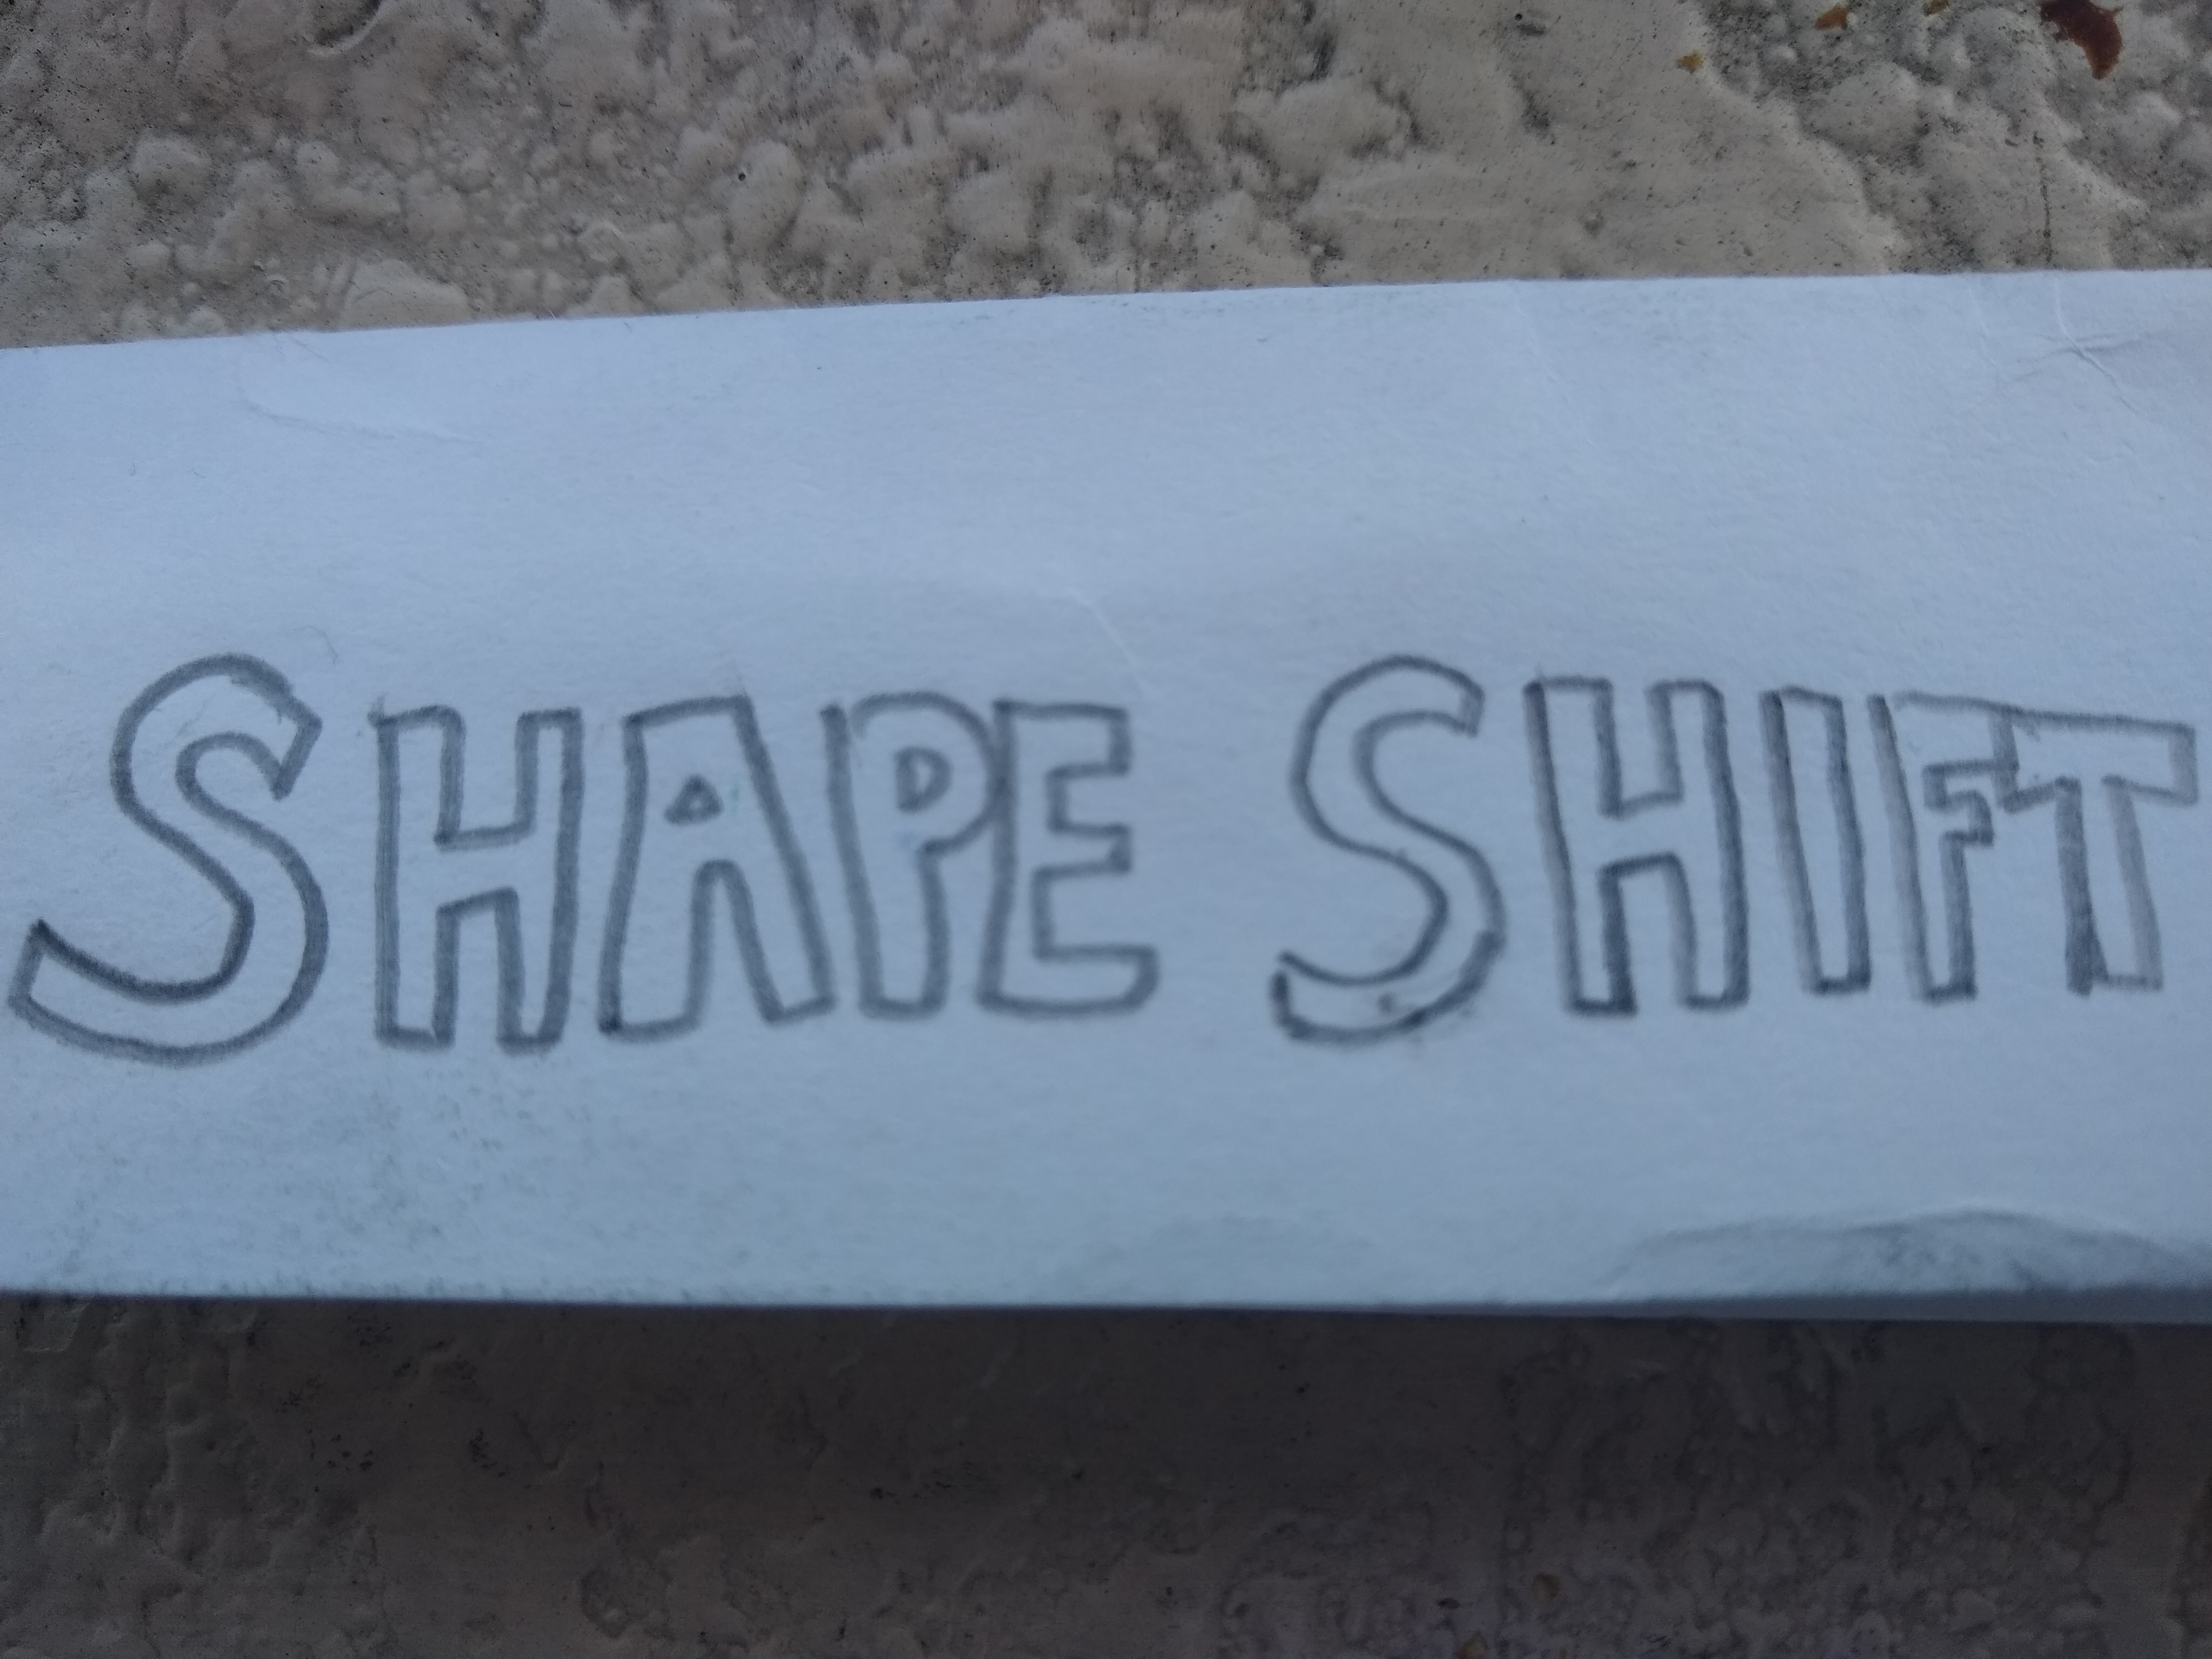 SHAPE SHIFT